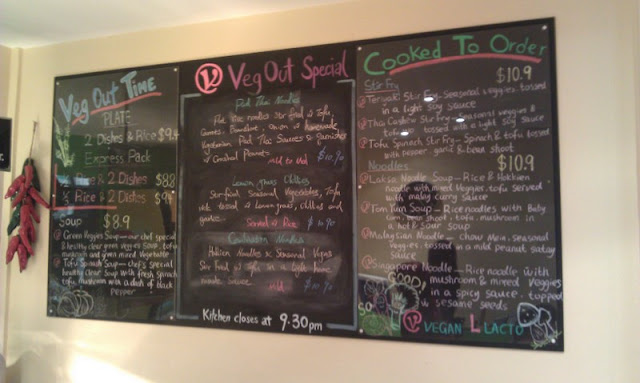 Veg Out Time
PLATE
2 Dishes & Rice $9.4
Express Pack
Rice & 2 Dishes $8.8
Rice & 2 Dishes
Soup $8.9
Green Veggies Soup – our chef special
& healthy clear green veggies soup, tofu
mushroom and green mixed Vegetable
Tofu Spinach Soup – chef's special
healthy Clear Soup with fresh spinach
tofu, mushroom with a dash of black
pepper
V Veg Out Special
Pad Thai Noodles
Pad Thai noodles Stir fried w Tofu,
Carrots, Beanshoot, onion w Homemade
Vegetarian Pad Thai Sauces & Garnished
w Crushed Peanuts.
Mild to Hot $10.90
Lemongrass Chillies
Stir-fried seasonal Vegetables, Tofu
tossed w Lemongrass, chillies and
garlic.
Served w Rice $10.90
Noodles
Hokkien Noodles & Seasonal Vegies
Stir fried w Tofu in a light home
made sauce
Mild $10.90
Kitchen closes at 9.30pm
Cooked To Order
Stir Fry $10.9
Teriyaki Stir Fry – Seasonal veggies tossed
in a light soy sauce
Thai Cashew Stir Fry – Seasonal veggies &
tofu tossed with a light soy sauce
Tofu Spinach Stir Fry – Spinach & tofu tossed
with pepper, garlic & bean shoot
Noodles $10.9
Luksa Noodle Soup – Rice & Hokkien
noodle with mixed veggies, tofu served
with malay curry sauce
Tom Yum Soup – Rice noodles with Baby
corn, bean shoot, tofu, mushroom in
a hot & sour soup
Malaysian Noodle – Chow Mein, seasonal
veggies, tossed in a mild peanut satay
sauce
Singapore Noodle – Rice noodle with
mushroom & mixed veggies
in a spicy sauce, topped
w sesame seeds
V VEGAN L LACTO